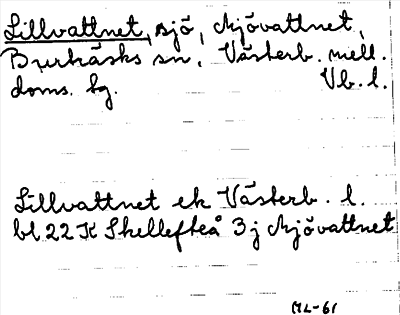 Lillvattnet, sjö, Mjövattnet,
Burträsks sn, Västerb. mell.
doms. hg. Vb. l.
Lillvattnet ek Västerb. l.
bl 22 K Skellefteå 3 j Mjövattnet
ML-61